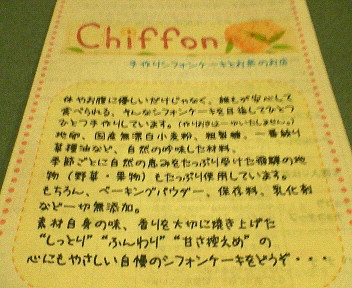 Chiffon
手作りシフォンケーキとお茶のお店
体やお腹に優しいだけじゃなく、誰もが安心して
食べられる、そんなシフォンケーキを目指してひとつ
ひとつ手作りしています。(作りおきは一切いたしません。)
地卵、国産無漂白小麦粉、粗製糖、一番絞り
菜種油など、自然の吟味した材料。
季節ごとに自然の恵みをたっぷり受けた飛騨の地
物(野菜・果物)もたっぷり使用しています。
もちろん、ベーキングパウダー、保存料、乳化剤
など一切無添加。
素材自身の味、香りを大切に焼き上げた
"しっとり" "ふんわり" "甘さ控えめ" の
心にもやさしい自慢のシフォンケーキをどうぞ・・・